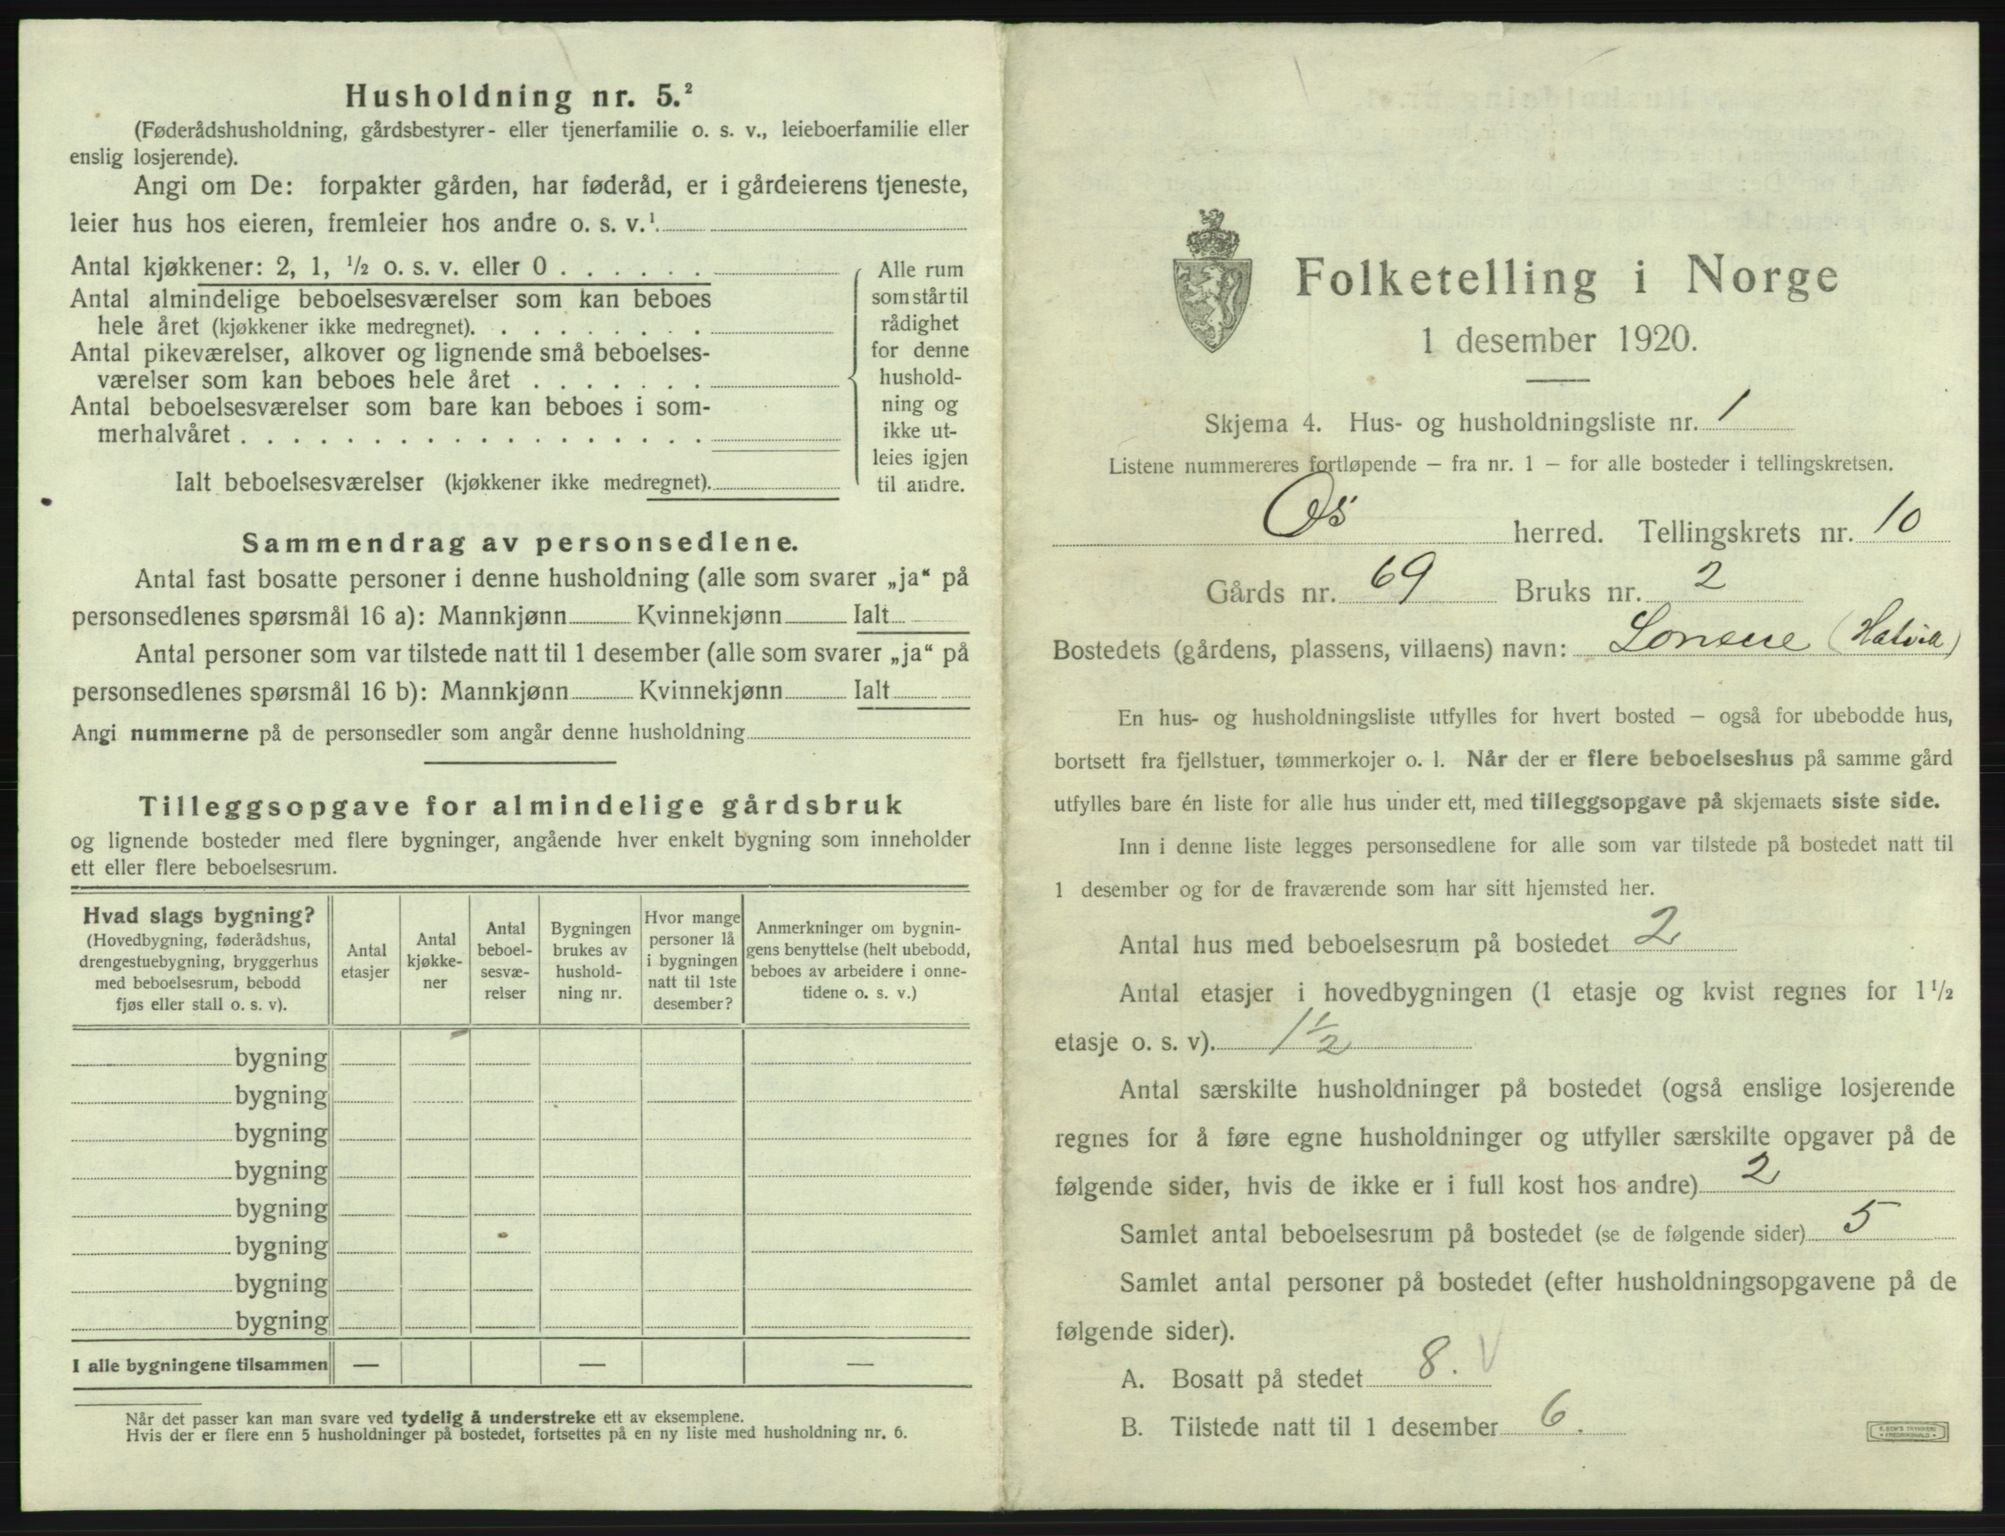 Husholdning nr. 5.²
(Føderådshusholdning, gårdsbestyrer- eller tjenerfamilie o. s. v., leieboerfamilie eller
enslig losjerende).
Angi om De: forpakter gården, har føderåd, er i gårdeierens tjeneste,
leier hus hos eieren, fremleier hos andre o. s. v.¹
Antal kjøkkener: 2, 1, ½ o. s. v. eller 0 . . . . . .
Antal almindelige beboelsesværelser som kan beboes
hele året (kjøkkener ikke medregnet). . . . . . . . .
Antal pikeværelser, alkover og lignende små beboelses-
værelser som kan beboes hele året . . . . . . .
Antal beboelsesværelser som bare kan beboes i som-
merhalvåret . . . . . . . . . . . . . . . . . .
Ialt beboelsesværelser (kjøkkener ikke medregnet).
Alle rum
som står til
rådighet
for denne
hushold-
ning og
ikke ut-
leies igjen
til andre.
Sammendrag av personsedlene.
Antal fast bosatte personer i denne husholdning (alle som svarer „ja“ på
personsedlenes spørsmål 16 a): Mannkjønn Kvinnekjønn Ialt
Antal personer som var tilstede natt til 1 desember (alle som svarer „ja“ på
personsedlenes spørsmål 16 b): Mannkjønn Kvinnekjønn Ialt
Angi nummerne på de personsedler som angår denne husholdning
Tilleggsopgave for almindelige gårdsbruk
og lignende bosteder med flere bygninger, angående hver enkelt bygning som inneholder
ett eller flere beboelsesrum.
Hvad slags bygning?
(Hovedbygning, føderådshus,
drengestuebygning, bryggerhus
med beboelsesrum, bebodd
fjøs eller stall o. s. v).
Antal
etasjer
Antal
kjøkke-
ner
Antal
beboel-
sesvæ-
relser
Bygningen
brukes av
hushold-
ning nr.
Hvor mange
personer lå
i bygningen
natt til 1ste
desember?
Anmerkninger om bygnin-
gens benyttelse (helt ubebodd,
beboes av arbeidere i onne-
tidene o. s. v.)
bygning
bygning
bygning
bygning
bygning
bygning
bygning
bygning
I alle bygningene tilsammen — — —
Når det passer kan man svare ved tydelig å understreke ett av eksemplene.
Hvis der er flere enn 5 husholdninger på bostedet, fortsettes på en ny liste med husholdning nr. 6.
Folketelling i Norge
1 desember 1920.
Skjema 4. Hus- og husholdningsliste nr. 1
Listene nummereres fortløpende – fra nr. 1 – for alle bosteder i tellingskretsen.
Os herred. Tellingskrets nr. 10
Gårds nr. 69 Bruks nr. 2
Bostedets (gårdens, plassens, villaens) navn: (Hatvik)
En hus- og husholdningsliste utfylles for hvert bosted – også for ubebodde hus,
bortsett fra fjellstuer, tømmerkojer o. l. Når der er flere beboelseshus på samme gård
utfylles bare én liste for alle hus under ett, med tilleggsopgave på skjemaets siste side.
Inn i denne liste legges personsedlene for alle som var tilstede på bostedet natt til
1 desember og for de fraværende som har sitt hjemsted her.
Antal hus med beboelsesrum på bostedet 2
Antal etasjer i hovedbygningen (1 etasje og kvist regnes for 1½
etasje o. s. v). 1½
Antal særskilte husholdninger på bostedet (også enslige losjerende
regnes for å føre egne husholdninger og utfyller særskilte opgaver på de
følgende sider, hvis de ikke er i full kost hos andre) 2
Samlet antal beboelsesrum på bostedet (se de følgende sider) 5
Samlet antal personer på bostedet (efter husholdningsopgavene på de
følgende sider).
A. Bosatt på stedet 8. V
B. Tilstede natt til 1 desember 6.